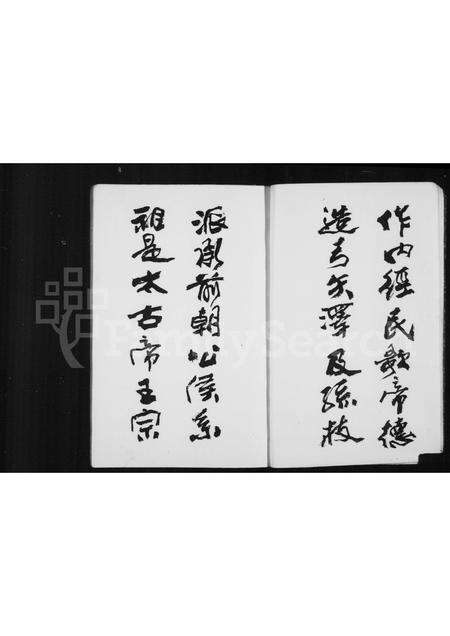 作內經民歌帝德
造弓矢澤及孫枝
派衍前朝公侯系
祖是太古帝王宗
FamilySearch